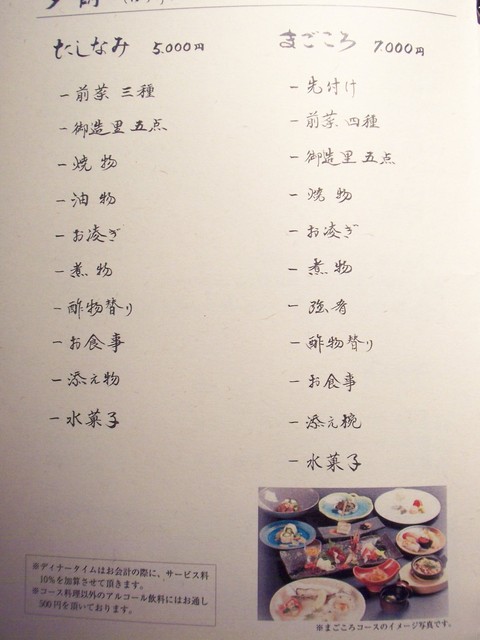 たしなみ 5.000円
一 前菜 三種
一 御造里 五点
一 焼物
一 油物
一 お凌ぎ
一 煮物
一 酢物替り
一 お食事
一 添え物
一 水菓子
※ディナータイムはお会計の際に、サービス料
10%を加算させて頂きます。
※コース料理以外のアルコール飲料にはお通し
500円を頂いております。
まごころ 7.000円
一 先付け
一 前菜 四種
一 御造里 五点
一 焼物
一 お凌ぎ
一 煮物
一 強肴
一 酢物替り
一 お食事
一 添え椀
一 水菓子
※まごころコースのイメージ写真です。